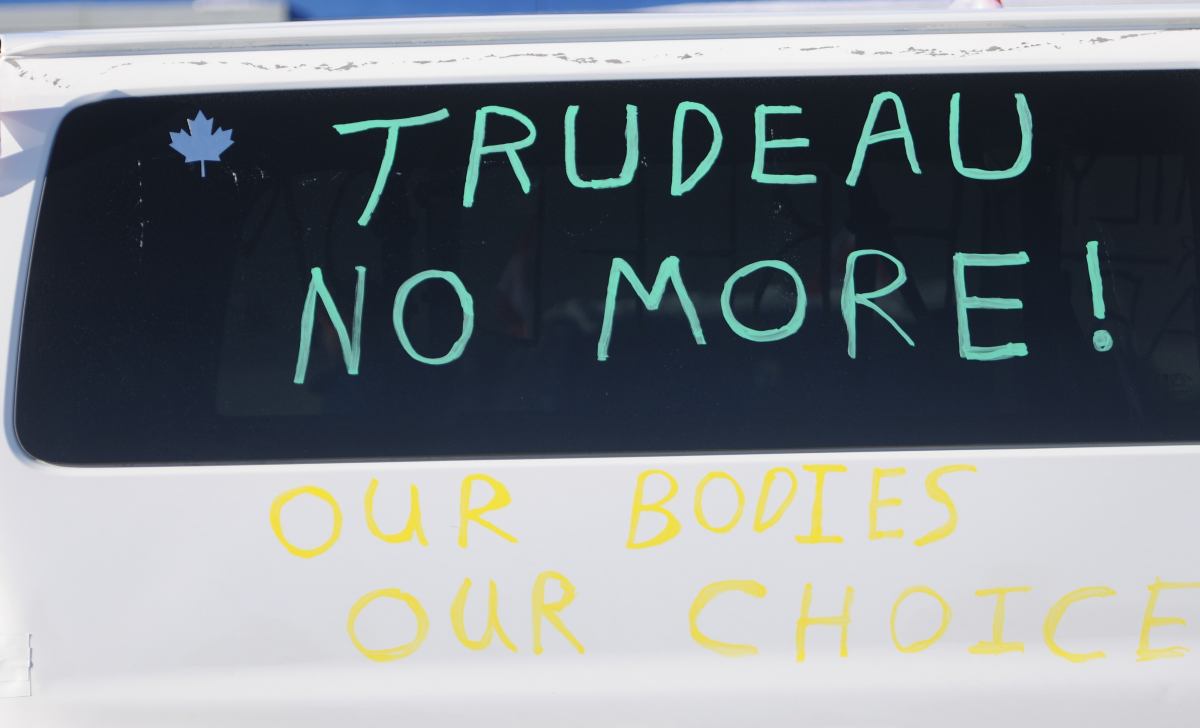 TRUDEAU
NO MORE!
OUR BODIES
OUR CHOICE